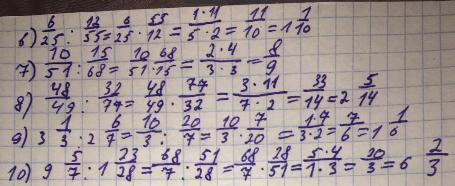 6) 6/25 : 12/55 = 6/25 · 55/12 = 1·11/5·2 = 11/10 = 1 1/10
7) 10/51 : 15/68 = 10/51 · 68/15 = 2·4/3·3 = 8/9
8) 48/49 : 32/77 = 48/49 · 77/32 = 3·11/7·2 = 33/14 = 2 5/14
9) 3 1/3 : 2 6/7 = 10/3 : 20/7 = 10/3 · 7/20 = 1·7/3·2 = 7/6 = 1 1/6
10) 9 5/7 : 1 23/28 = 68/7 : 51/28 = 68/7 · 28/51 = 5·4/1·3 = 20/3 = 6 2/3